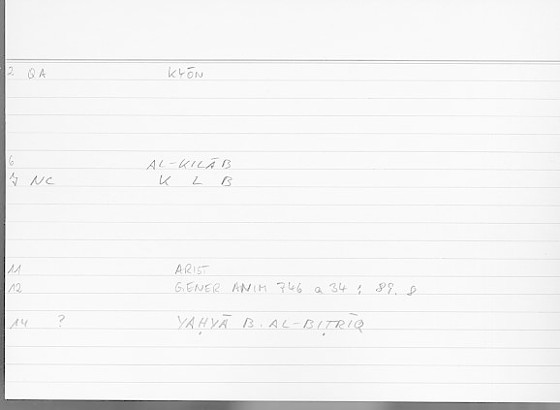 2 QA KYŌN
6 AL-KILĀB
7 NC K L B
11 ARIST
12 GENER ANIM 746 a 34 : 89. 8
14 ? YAḤYĀ B. AL-BIṬRĪQ